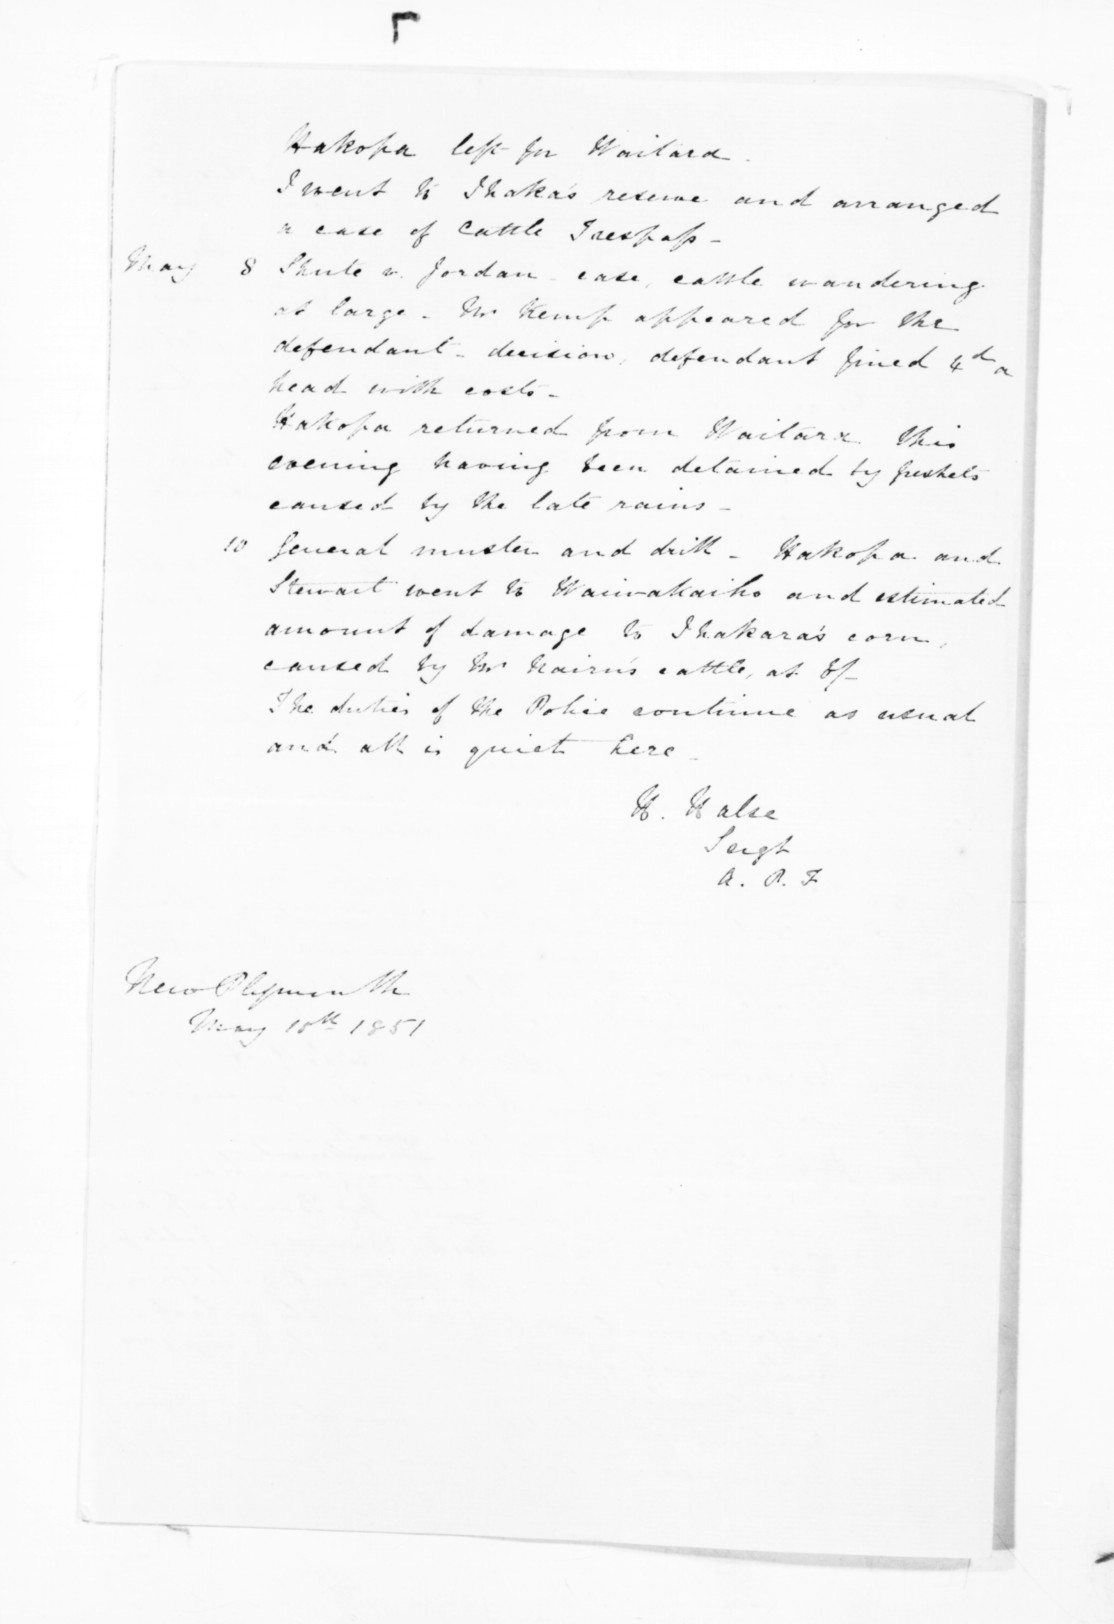 Hakopa left for Waitara.
I went to Ihaka's reserve and arranged
a case of Cattle Trespass -
May 8 Shute v. Jordan - case, cattle wandering
at large - Mr Kemp appeared for the
defendant - decision, defendant fined 4d a
head with costs -
Hakopa returned from Waitara this
evening having been detained by freshets
caused by the late rains -
10 General muster and drill - Hakopa and
Stewart went to Waiwakaiho and estimated
amount of damage to Ihakara's corn,
caused by Mr Nairn's cattle, at 8/-
The duties of the Police continue as usual
and all is quiet here -
H. Halse
Sergt
A. P. F
New Plymouth
May 10th 1851